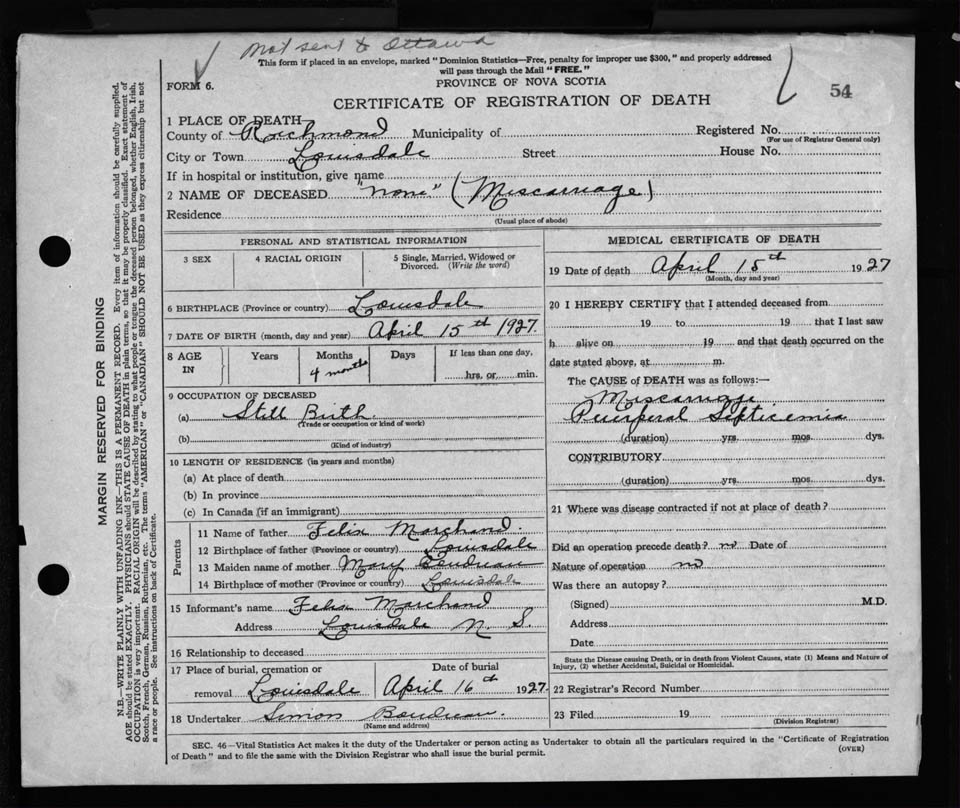 Not sent to Ottawa
This form if placed in an envelope, marked "Dominion Statistics—Free, penalty for improper use $300," and properly addressed
will pass through the Mail "FREE."
FORM 6.
PROVINCE OF NOVA SCOTIA
54
CERTIFICATE OF REGISTRATION OF DEATH
1 PLACE OF DEATH
County of Richmond Municipality of Registered No.
(For use of Registrar General only)
City or Town Louisdale Street House No.
If in hospital or institution, give name
2 NAME OF DECEASED "none" (Miscarriage)
Residence
(Usual place of abode)
PERSONAL AND STATISTICAL INFORMATION
3 SEX 4 RACIAL ORIGIN 5 Single, Married, Widowed or
Divorced. (Write the word)
6 BIRTHPLACE (Province or country) Louisdale
7 DATE OF BIRTH (month, day and year) April 15th 1927.
8 AGE IN Years Months Days If less than one day,
4 months
hrs. or min.
9 OCCUPATION OF DECEASED
(a) Still Birth
(Trade or occupation or kind of work)
(b)
(Kind of industry)
10 LENGTH OF RESIDENCE (in years and months)
(a) At place of death
(b) In province
(c) In Canada (if an immigrant)
Parents
11 Name of father Felix Marchand.
12 Birthplace of father (Province or country) Louisdale
13 Maiden name of mother Mary Boudreau
14 Birthplace of mother (Province or country) Louisdale
15 Informant's name Felix Marchand
Address Louisdale N. S.
16 Relationship to deceased
17 Place of burial, cremation or Date of burial
removal Louisdale April 16th 1927.
18 Undertaker Simon Boudreau.
(Name and address)
MEDICAL CERTIFICATE OF DEATH
19 Date of death April 15th 1927
(Month, day and year)
20 I HEREBY CERTIFY that I attended deceased from
19 to 19 that I last saw
h alive on 19 and that death occurred on the
date stated above, at m.
The CAUSE of DEATH was as follows:—
Miscarriage
Puerperal Septicemia
(duration) yrs. mos. dys.
CONTRIBUTORY
(duration) yrs. mos. dys.
21 Where was disease contracted if not at place of death?
Did an operation precede death? no Date of
Nature of operation no
Was there an autopsy?
(Signed) M.D.
Address
Date
State the Disease causing Death, or in death from Violent Causes, state (1) Means and Nature of
Injury, (2) whether Accidental, Suicidal or Homicidal.
22 Registrar's Record Number
23 Filed 19
(Division Registrar)
SEC. 46—Vital Statistics Act makes it the duty of the Undertaker or person acting as Undertaker to obtain all the particulars required in the "Certificate of Registration
of Death" and to file the same with the Division Registrar who shall issue the burial permit. (OVER)
MARGIN RESERVED FOR BINDING
N.B.—WRITE PLAINLY WITH UNFADING INK—THIS IS A PERMANENT RECORD. Every item of information should be carefully supplied.
AGE should be stated EXACTLY. PHYSICIANS should STATE CAUSE OF DEATH in plain terms, so that it may be properly classified. Exact statement of
OCCUPATION is very important. RACIAL ORIGIN will be described by stating to what people or tongue the deceased person belonged, whether English, Irish,
Scotch, French, German, Russian, Ruthenian, etc. The terms "AMERICAN" or "CANADIAN" SHOULD NOT BE USED as they express citizenship but not
a race or people. See instructions on back of Certificate.